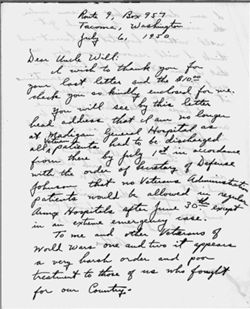 Route 9, Box 957
Tacoma, Washington
July 6, 1950
Dear Uncle Will:
I wish to thank you for
your last letter and the $10.00
check you so kindly enclosed for me.
You will see by this letter
head address that I am no longer
at Madigan General Hospital as
all Veterans patients had to be discharged
from there by July 1st in accordance
with the order of Secretary of Defense
Johnson that no Veterans Administration
patients would be allowed in regular
Army Hospitals after June 30th except
in an extreme emergency case.
To me and other Veterans of
World Wars one and two it appears
a very harsh order and poor
treatment to those of us who fought
for our Country.